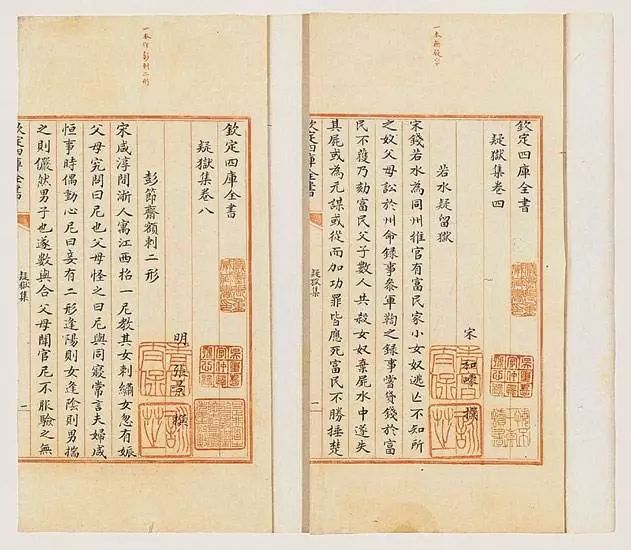 一本無
欽定四庫全書
疑獄集卷四
宋 和㠓 撰
若水疑留獄
宋錢若水為同州推官有富民家小女奴逃亡不知所
之奴父母訟於州命錄事參軍鞫之錄事嘗貸錢於富
民不獲乃劾富民父子數人共殺女奴棄屍水中遂失
其屍或為元謀或從而加功罪皆應死富民不勝捶楚
欽定四庫全書
疑獄集
一
一本作彭刺二形
欽定四庫全書
疑獄集卷八
明 張景 撰
彭節齋額刺二形
宋咸淳間浙人寓江西招一尼教其女刺繡女忽有娠
父母究問曰尼也父母怪之曰尼與同寢常言夫婦咸
恒事時偶動心尼曰妾有二形逢陽則女逢陰則男揣
之則儼然男子也遂數與合父母聞官尼不服驗之無
欽定四庫全書
疑獄集
一